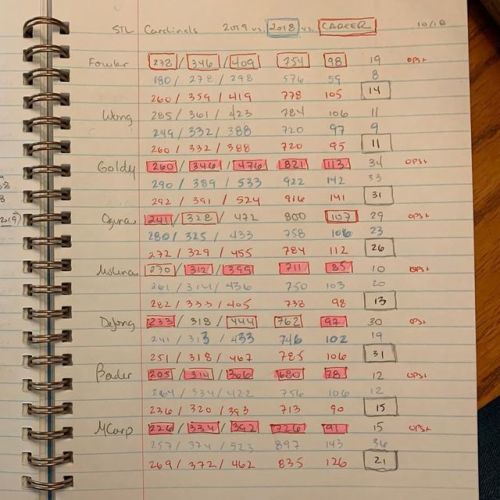 STL Cardinals 2019 vs. 2018 vs. CAREER 10/18
Fowler 238 / 346 / 409 754 98 19 OPS+
180 / 278 / 298 576 59 8
260 / 359 / 419 778 105 14
Wong 285 / 361 / 423 784 106 11
249 / 332 / 388 720 97 9
260 / 332 / 388 720 95 11
Goldy 260 / 346 / 476 821 113 34 OPS+
290 / 389 / 533 922 142 33
292 / 391 / 524 916 141 31
Ozuna 241 / 328 / 472 800 107 29 OPS+
280 / 325 / 433 758 106 23
272 / 329 / 455 784 112 26
Molina 270 / 312 / 399 711 85 10 OPS+
261 / 314 / 436 750 103 20
282 / 333 / 405 738 98 13
DeJong 233 / 318 / 444 762 97 30 OPS+
241 / 313 / 433 746 102 19
251 / 318 / 467 785 106 31
Bader 205 / 314 / 366 680 78 12 OPS+
264 / 334 / 422 756 106 12
236 / 320 / 393 713 90 15
MCarp 226 / 334 / 392 726 91 15 OPS+
257 / 374 / 523 897 143 36
269 / 372 / 462 835 126 21